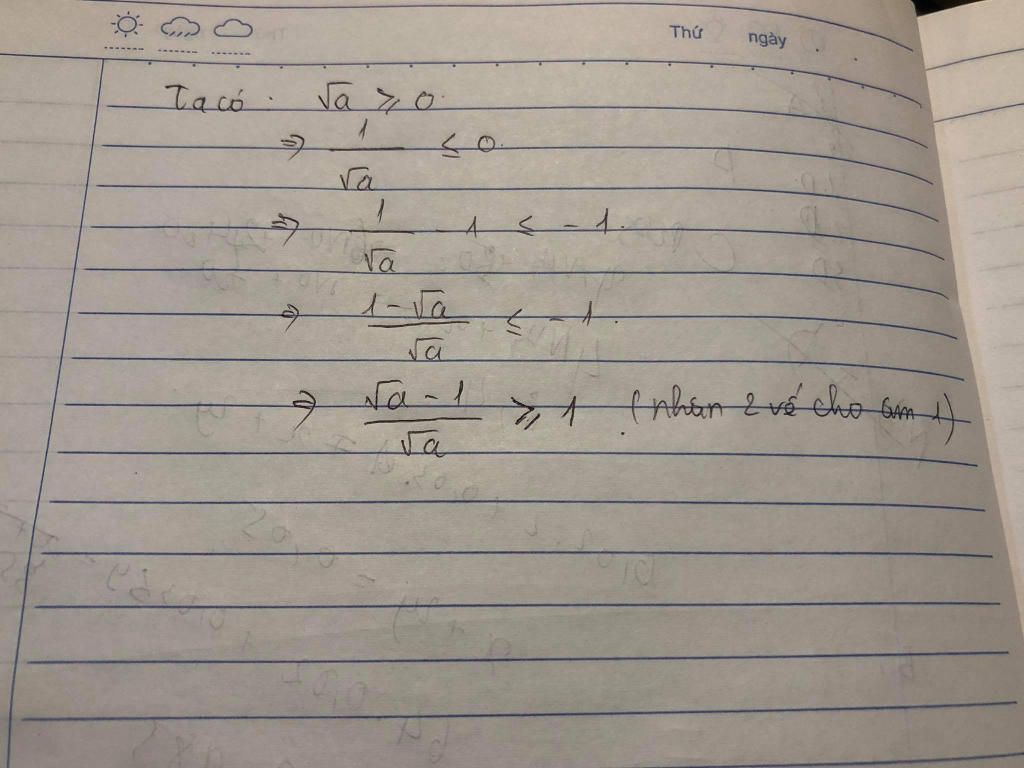 Thứ ngày .
Ta có : √a ⩾ 0.
⇒ 1/√a ≤ 0.
⇒ 1/√a - 1 ≤ -1.
⇒ (1-√a)/√a ≤ -1.
⇒ (√a - 1)/√a ⩾ 1 (nhân 2 vế cho âm 1)